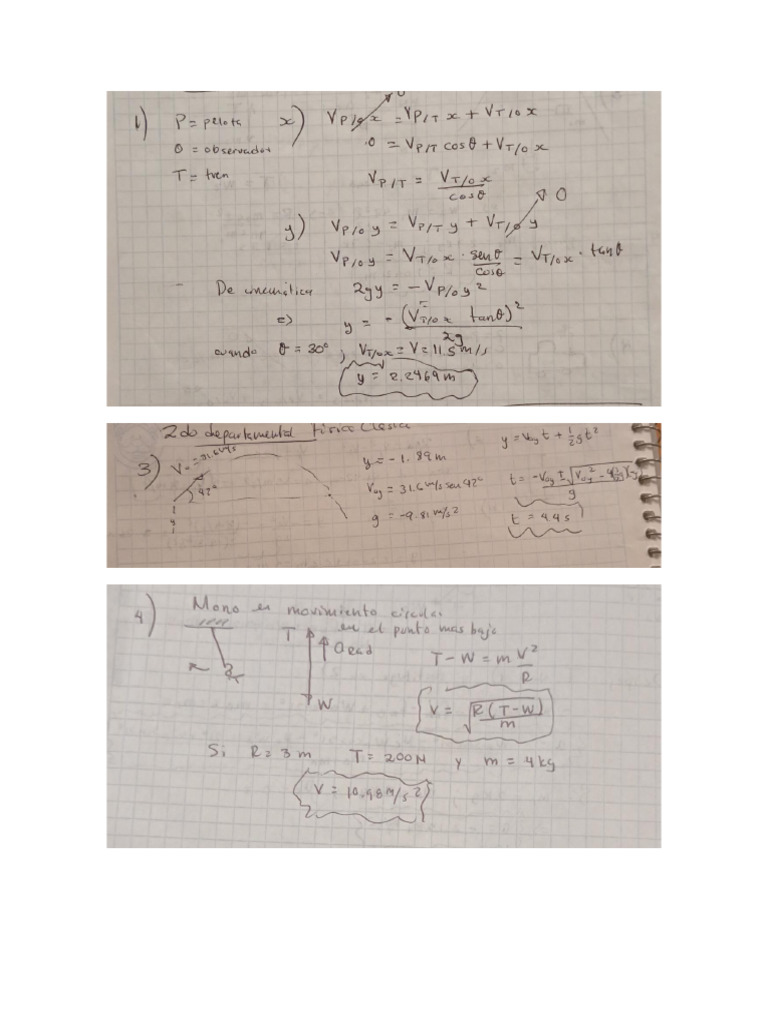 1) P = pelota x) V_P/O x = V_P/T x + V_T/O x
0
O = observador 0 = V_P/T cos θ + V_T/O x
T = tren V_P/T = V_T/O x / cos θ
y) V_P/O y = V_P/T y + V_T/O y 0
V_P/O y = V_T/O x · sen θ / cos θ = V_T/O x · tan θ
- De cinemática 2gy = - V_P/O y²
y = - (V_T/O x tan θ)² / 2g
cuando θ = 30°, V_T/O x = V = 11.5 m/s
y = 2.2469 m
2do departamental Física Clásica
3) V = 31.6 m/s
42°
y
y = -1.89 m
V_oy = 31.6 m/s sen 42°
g = -9.81 m/s²
y = V_oy t + ½gt²
t = -V_oy ± √(V_oy² - 4(½g)(y)) / g
t = 4.4 s
4) Mono en movimiento circular
en el punto mas bajo
T
a rad
W
T - W = m V² / R
V = √(R(T-W) / m)
Si R = 3 m T = 200N y m = 4 kg
V = 10.98 m/s²